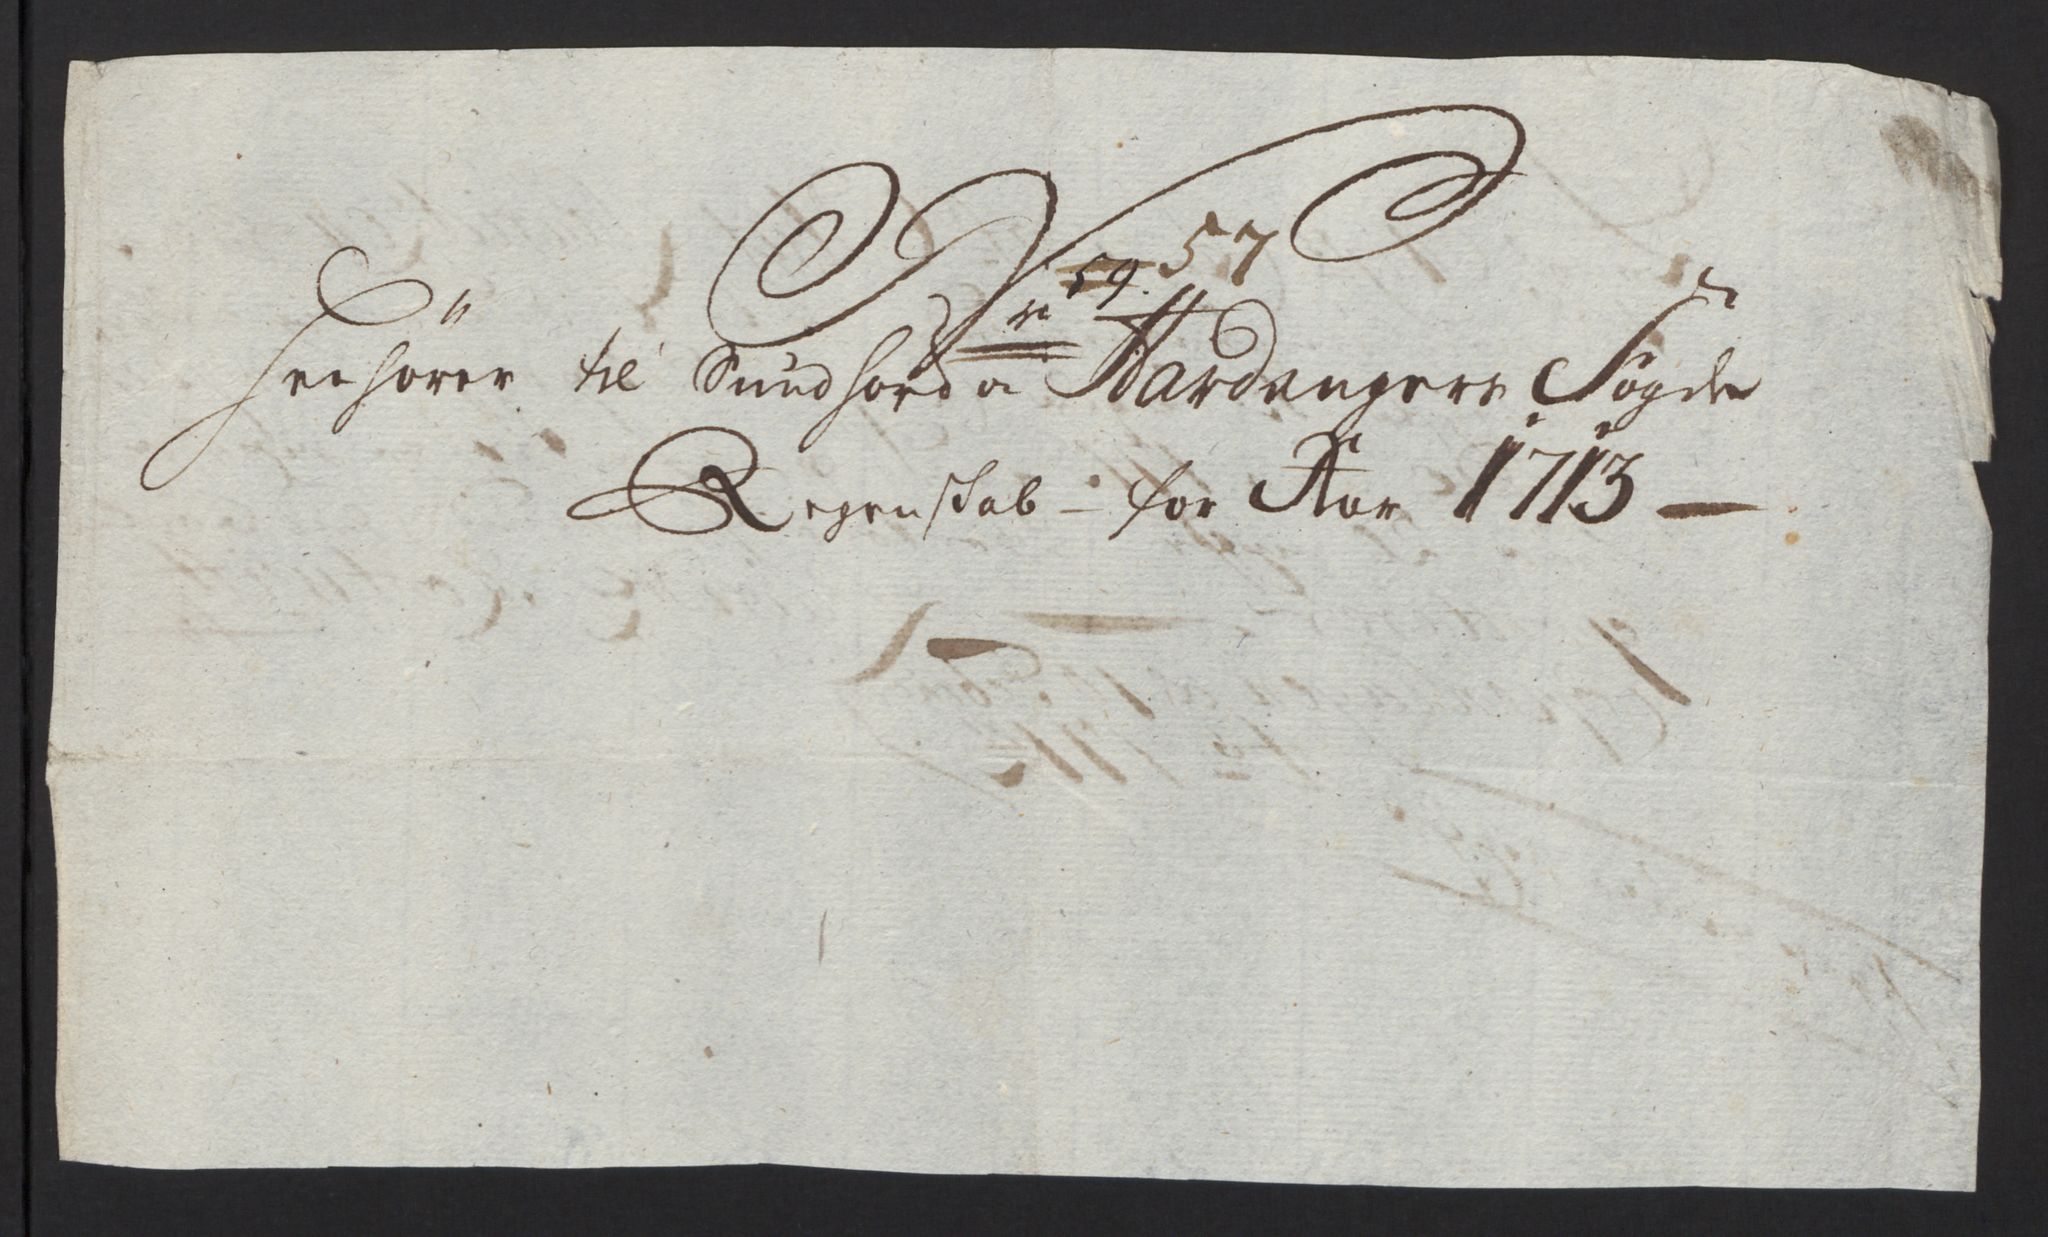 No 59. 57
Henhörer til Sundhord oc Hardangers Fögde
Regenskab - for Aar 1713 —